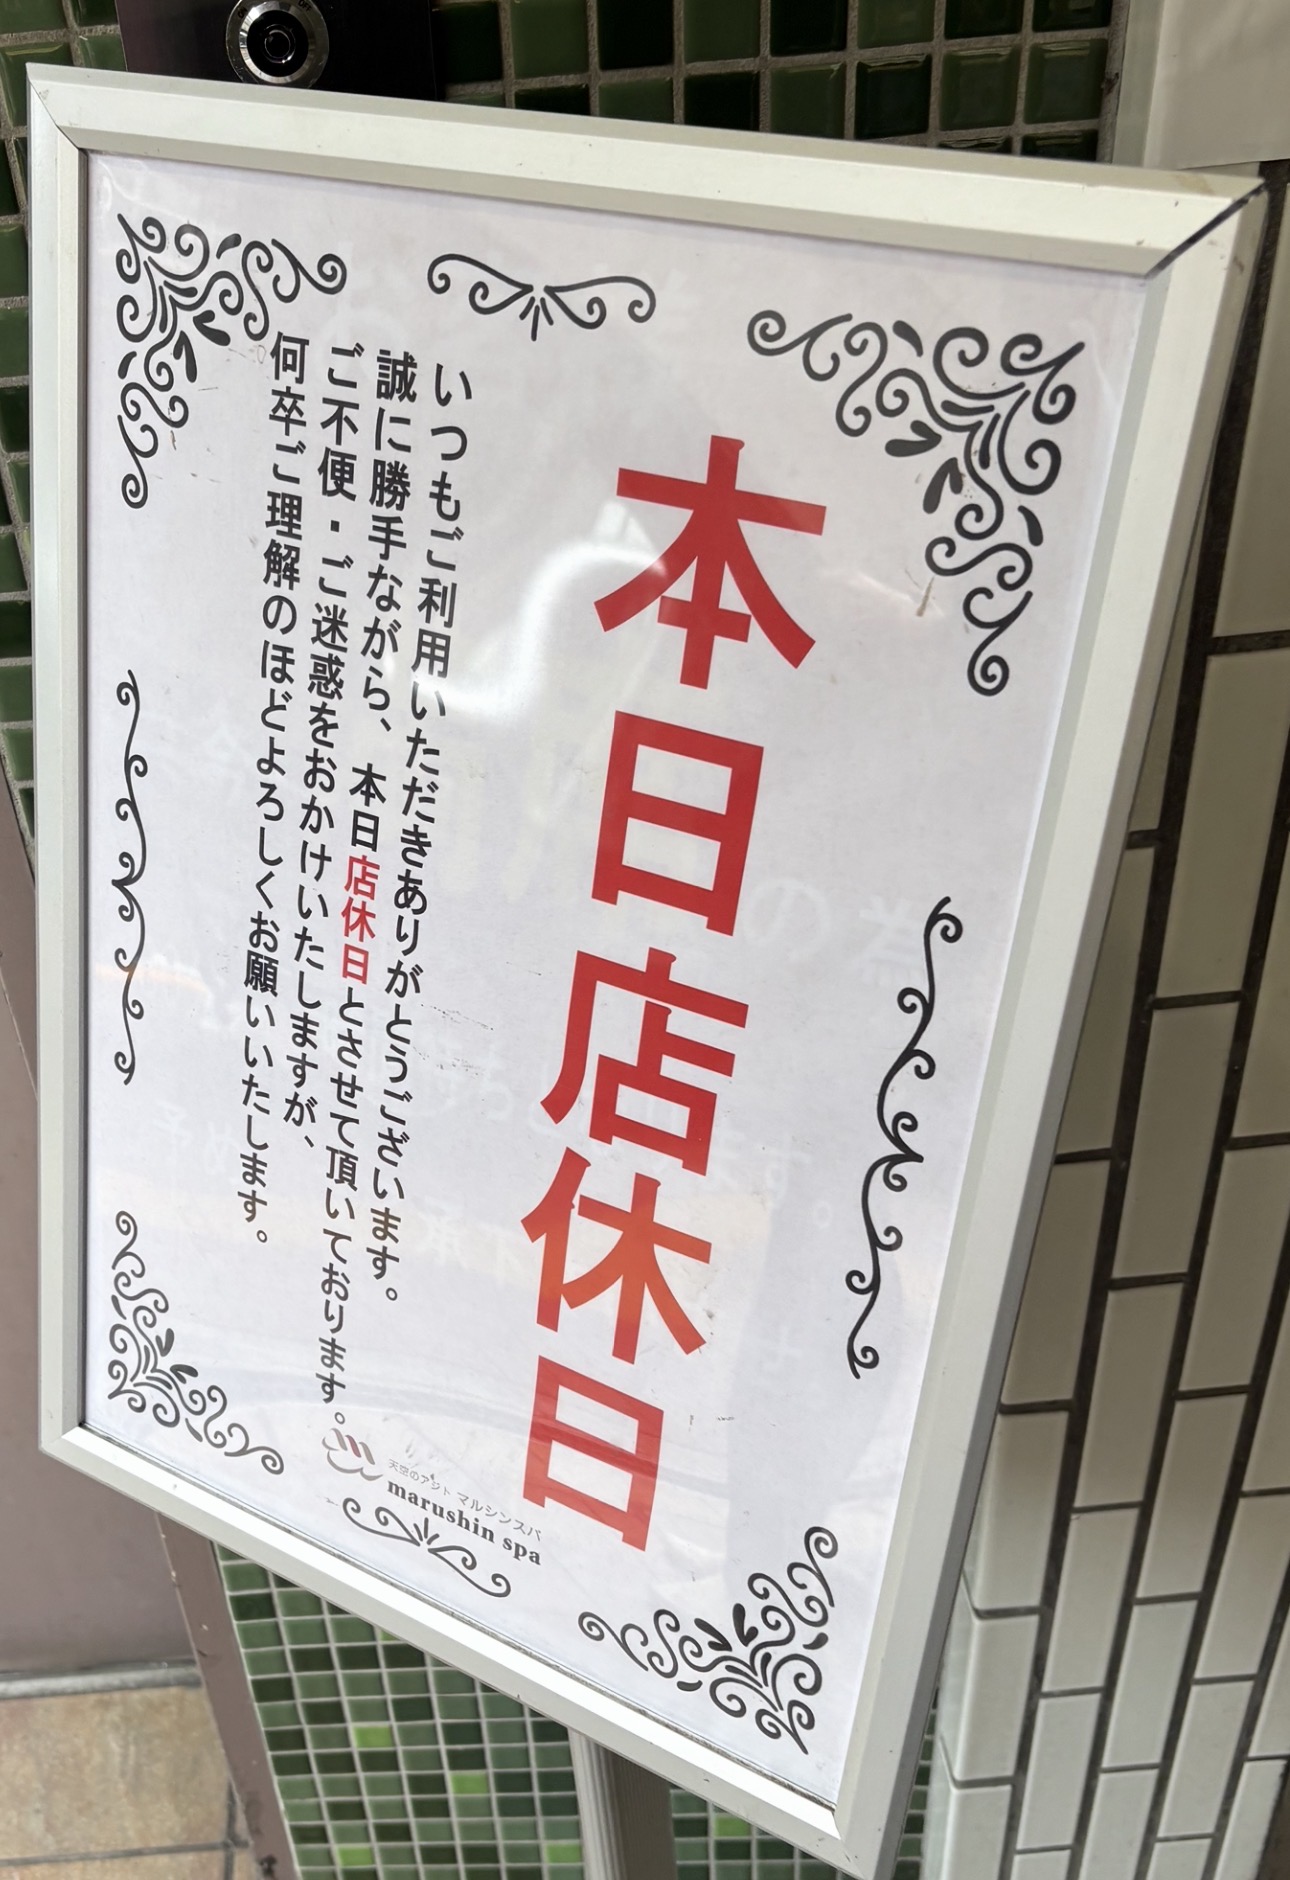 本日店休日
いつもご利用いただきありがとうございます。
誠に勝手ながら、本日店休日とさせて頂いております。
ご不便・ご迷惑をおかけいたしますが、
何卒ご理解のほどよろしくお願いいたします。
天空のアジト マルシンスパ
marushin spa